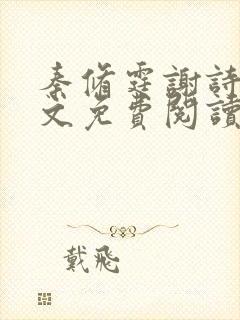 秦脩霆謝詩
文免費閱讀
戴飛